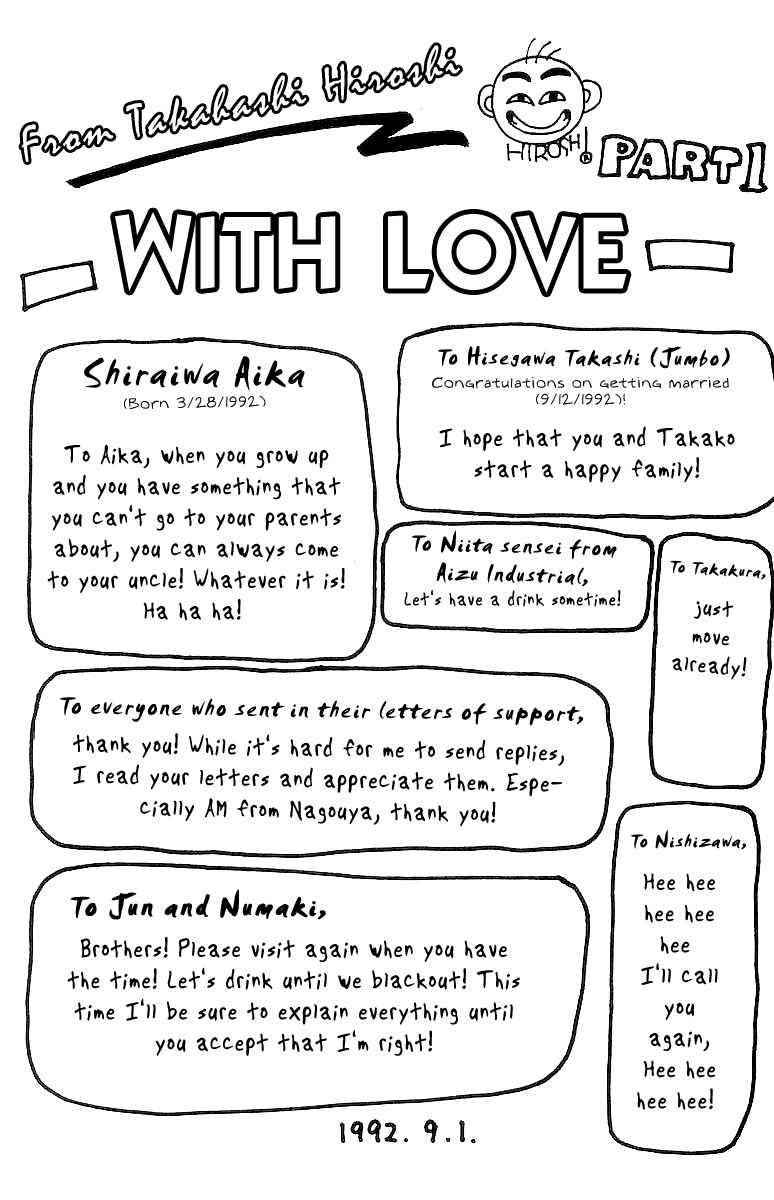 From Takahashi Hiroshi
HIROSHI!®
PART 1
WITH LOVE
Shiraiwa Aika
(Born 3/28/1992)
To Aika, when you grow up
and you have something that
you can't go to your parents
about, you can always come
to your uncle! Whatever it is!
Ha ha ha!
To Hisegawa Takashi (Jumbo)
Congratulations on getting married
(9/12/1992)!
I hope that you and Takako
start a happy family!
To Niita sensei from
Aizu Industrial,
Let's have a drink sometime!
To Takakura,
just
move
already!
To everyone who sent in their letters of support,
thank you! While it's hard for me to send replies,
I read your letters and appreciate them. Espe-
cially AM from Nagouya, thank you!
To Nishizawa,
Hee hee
hee hee
hee
I'll call
you
again,
Hee hee
hee hee!
To Jun and Numaki,
Brothers! Please visit again when you have
the time! Let's drink until we blackout! This
time I'll be sure to explain everything until
you accept that I'm right!
1992. 9.1.